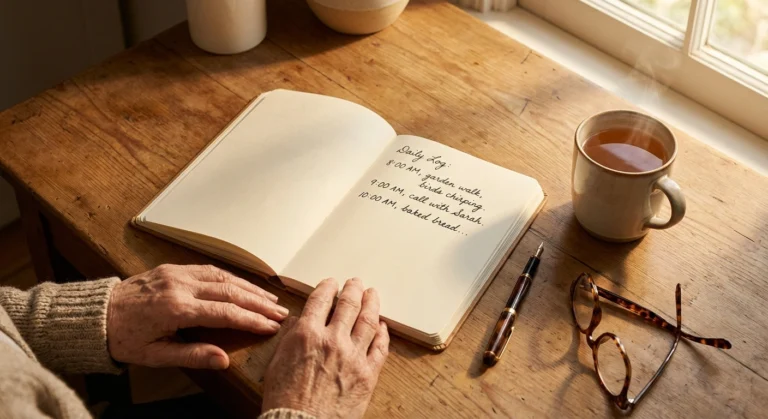 Daily Log:
8:00 AM, garden walk,
birds chirping.
9:00 AM, call with Sarah.
10:00 AM, baked bread...